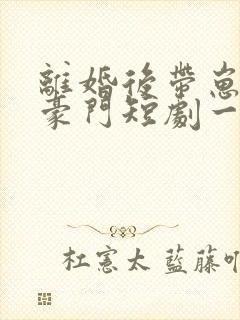 離婚後帶崽
豪門短劇一
杜憲太 藍藤